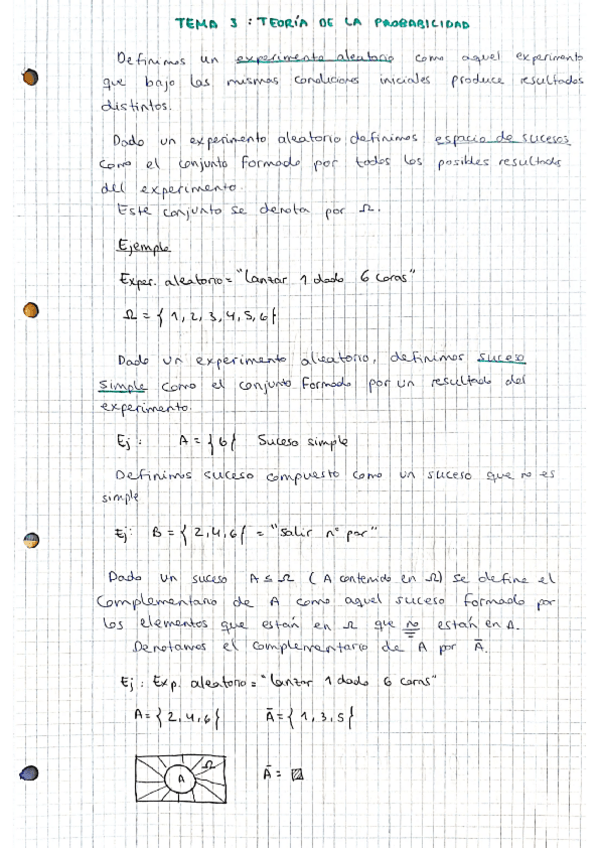 TEMA 3: TEORÍA DE LA PROBABILIDAD
Definimos un experimento aleatorio como aquel experimento
que bajo las mismas condiciones iniciales produce resultados
distintos.
Dado un experimento aleatorio definimos espacio de sucesos
como el conjunto formado por todos los posibles resultados
del experimento.
Este conjunto se denota por Ω.
Ejemplo
Exper. aleatorio = "Lanzar 1 dado 6 caras"
Ω = { 1, 2, 3, 4, 5, 6 }
Dado un experimento aleatorio, definimos suceso
simple como el conjunto formado por un resultado del
experimento.
Ej: A = { 6 } Suceso simple
Definimos suceso compuesto como un suceso que no es
simple
Ej: B = { 2, 4, 6 } = "Salir nº par"
Dado un suceso A ⊆ Ω ( A contenido en Ω) se define el
complementario de A como aquel suceso formado por
los elementos que están en Ω que no están en A.
Denotamos el complementario de A por Ā.
Ej: Exp. aleatorio = "Lanzar 1 dado 6 caras"
A = { 2, 4, 6 } Ā = { 1, 3, 5 }
Ω
A Ā =